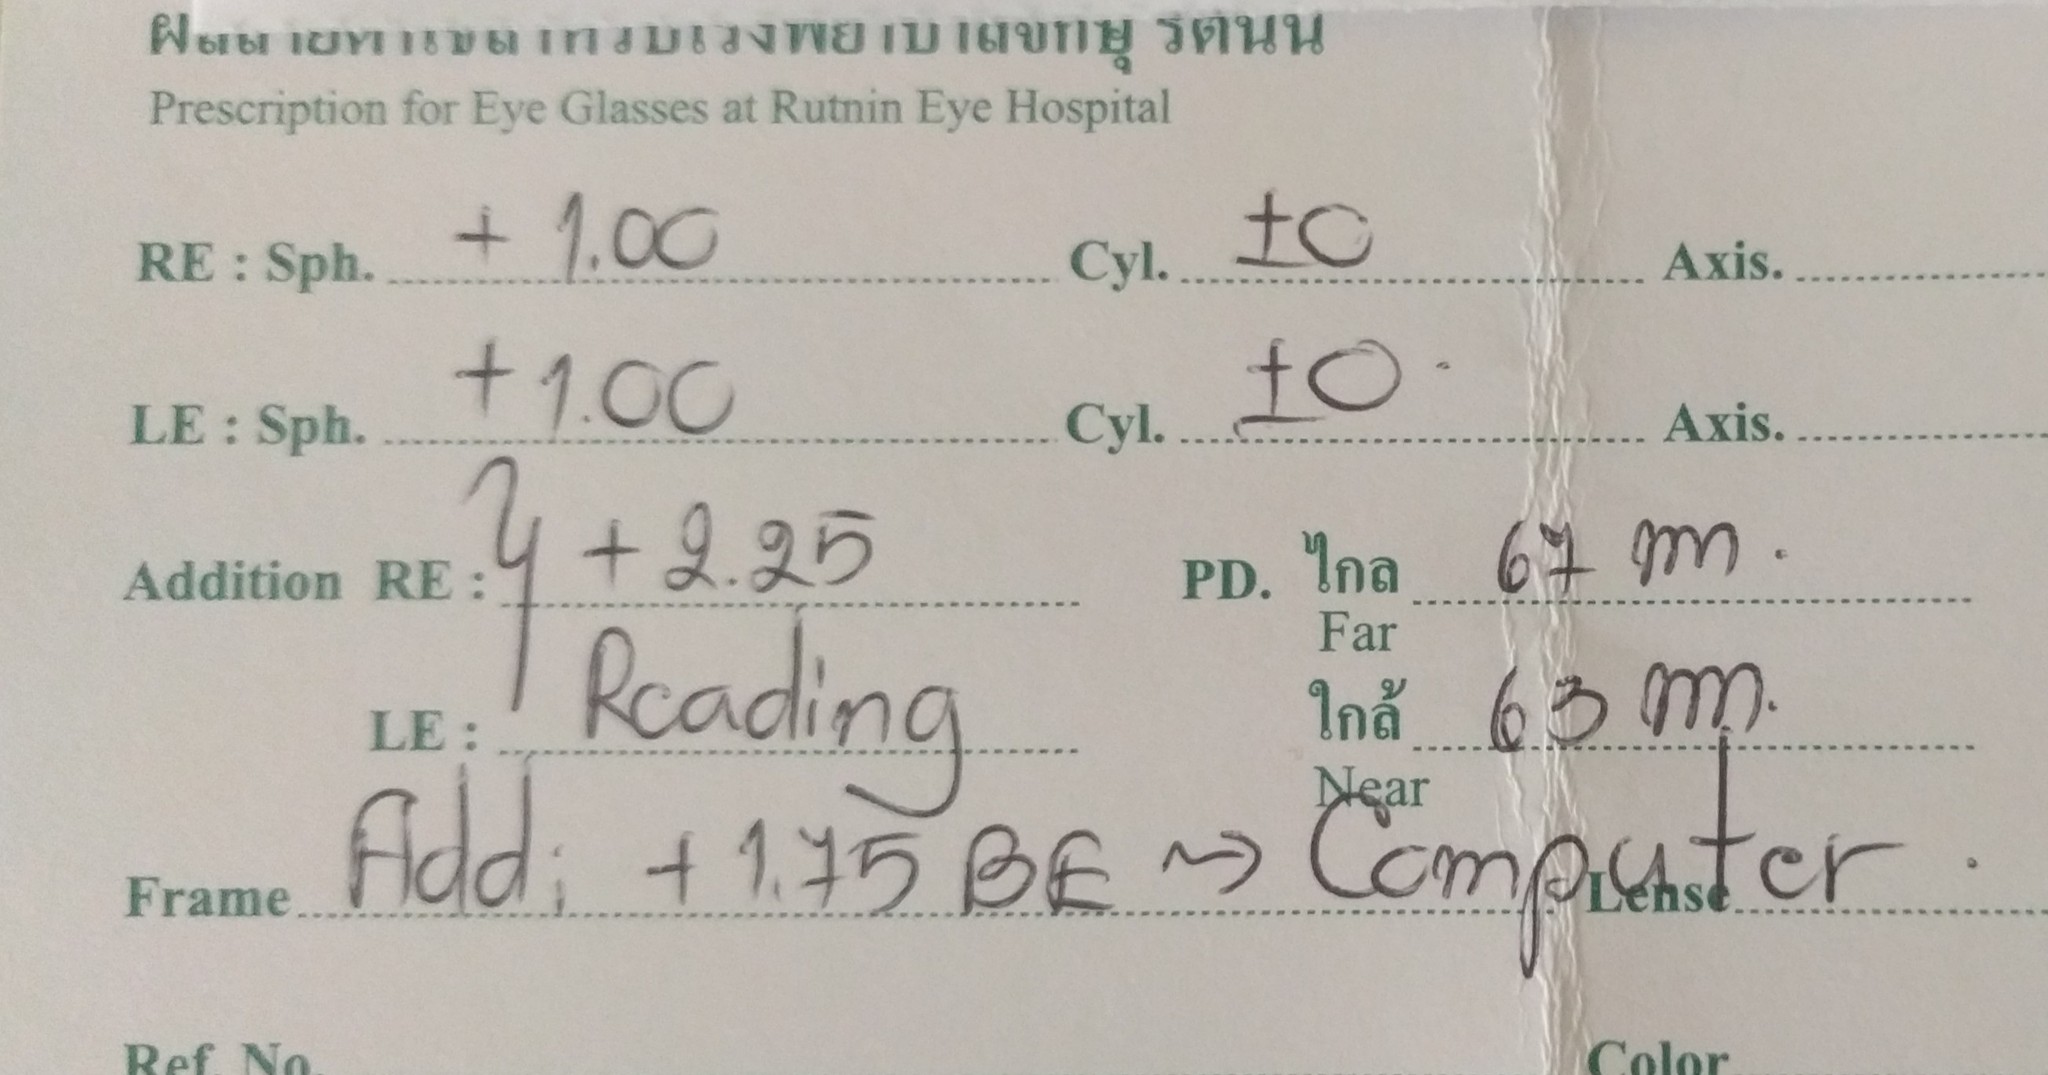 รัตนิน
Prescription for Eye Glasses at Rutnin Eye Hospital
RE : Sph. + 1.00 Cyl. ±0 Axis.
LE : Sph. +1.00 Cyl. ±0. Axis.
Addition RE : + 2.25 PD. ไกล 67 m.
Far
LE : Reading ใกล้ 63 m.
Near
Frame Add: +1.75 BE → Computer. Lense
Ref. No. Color